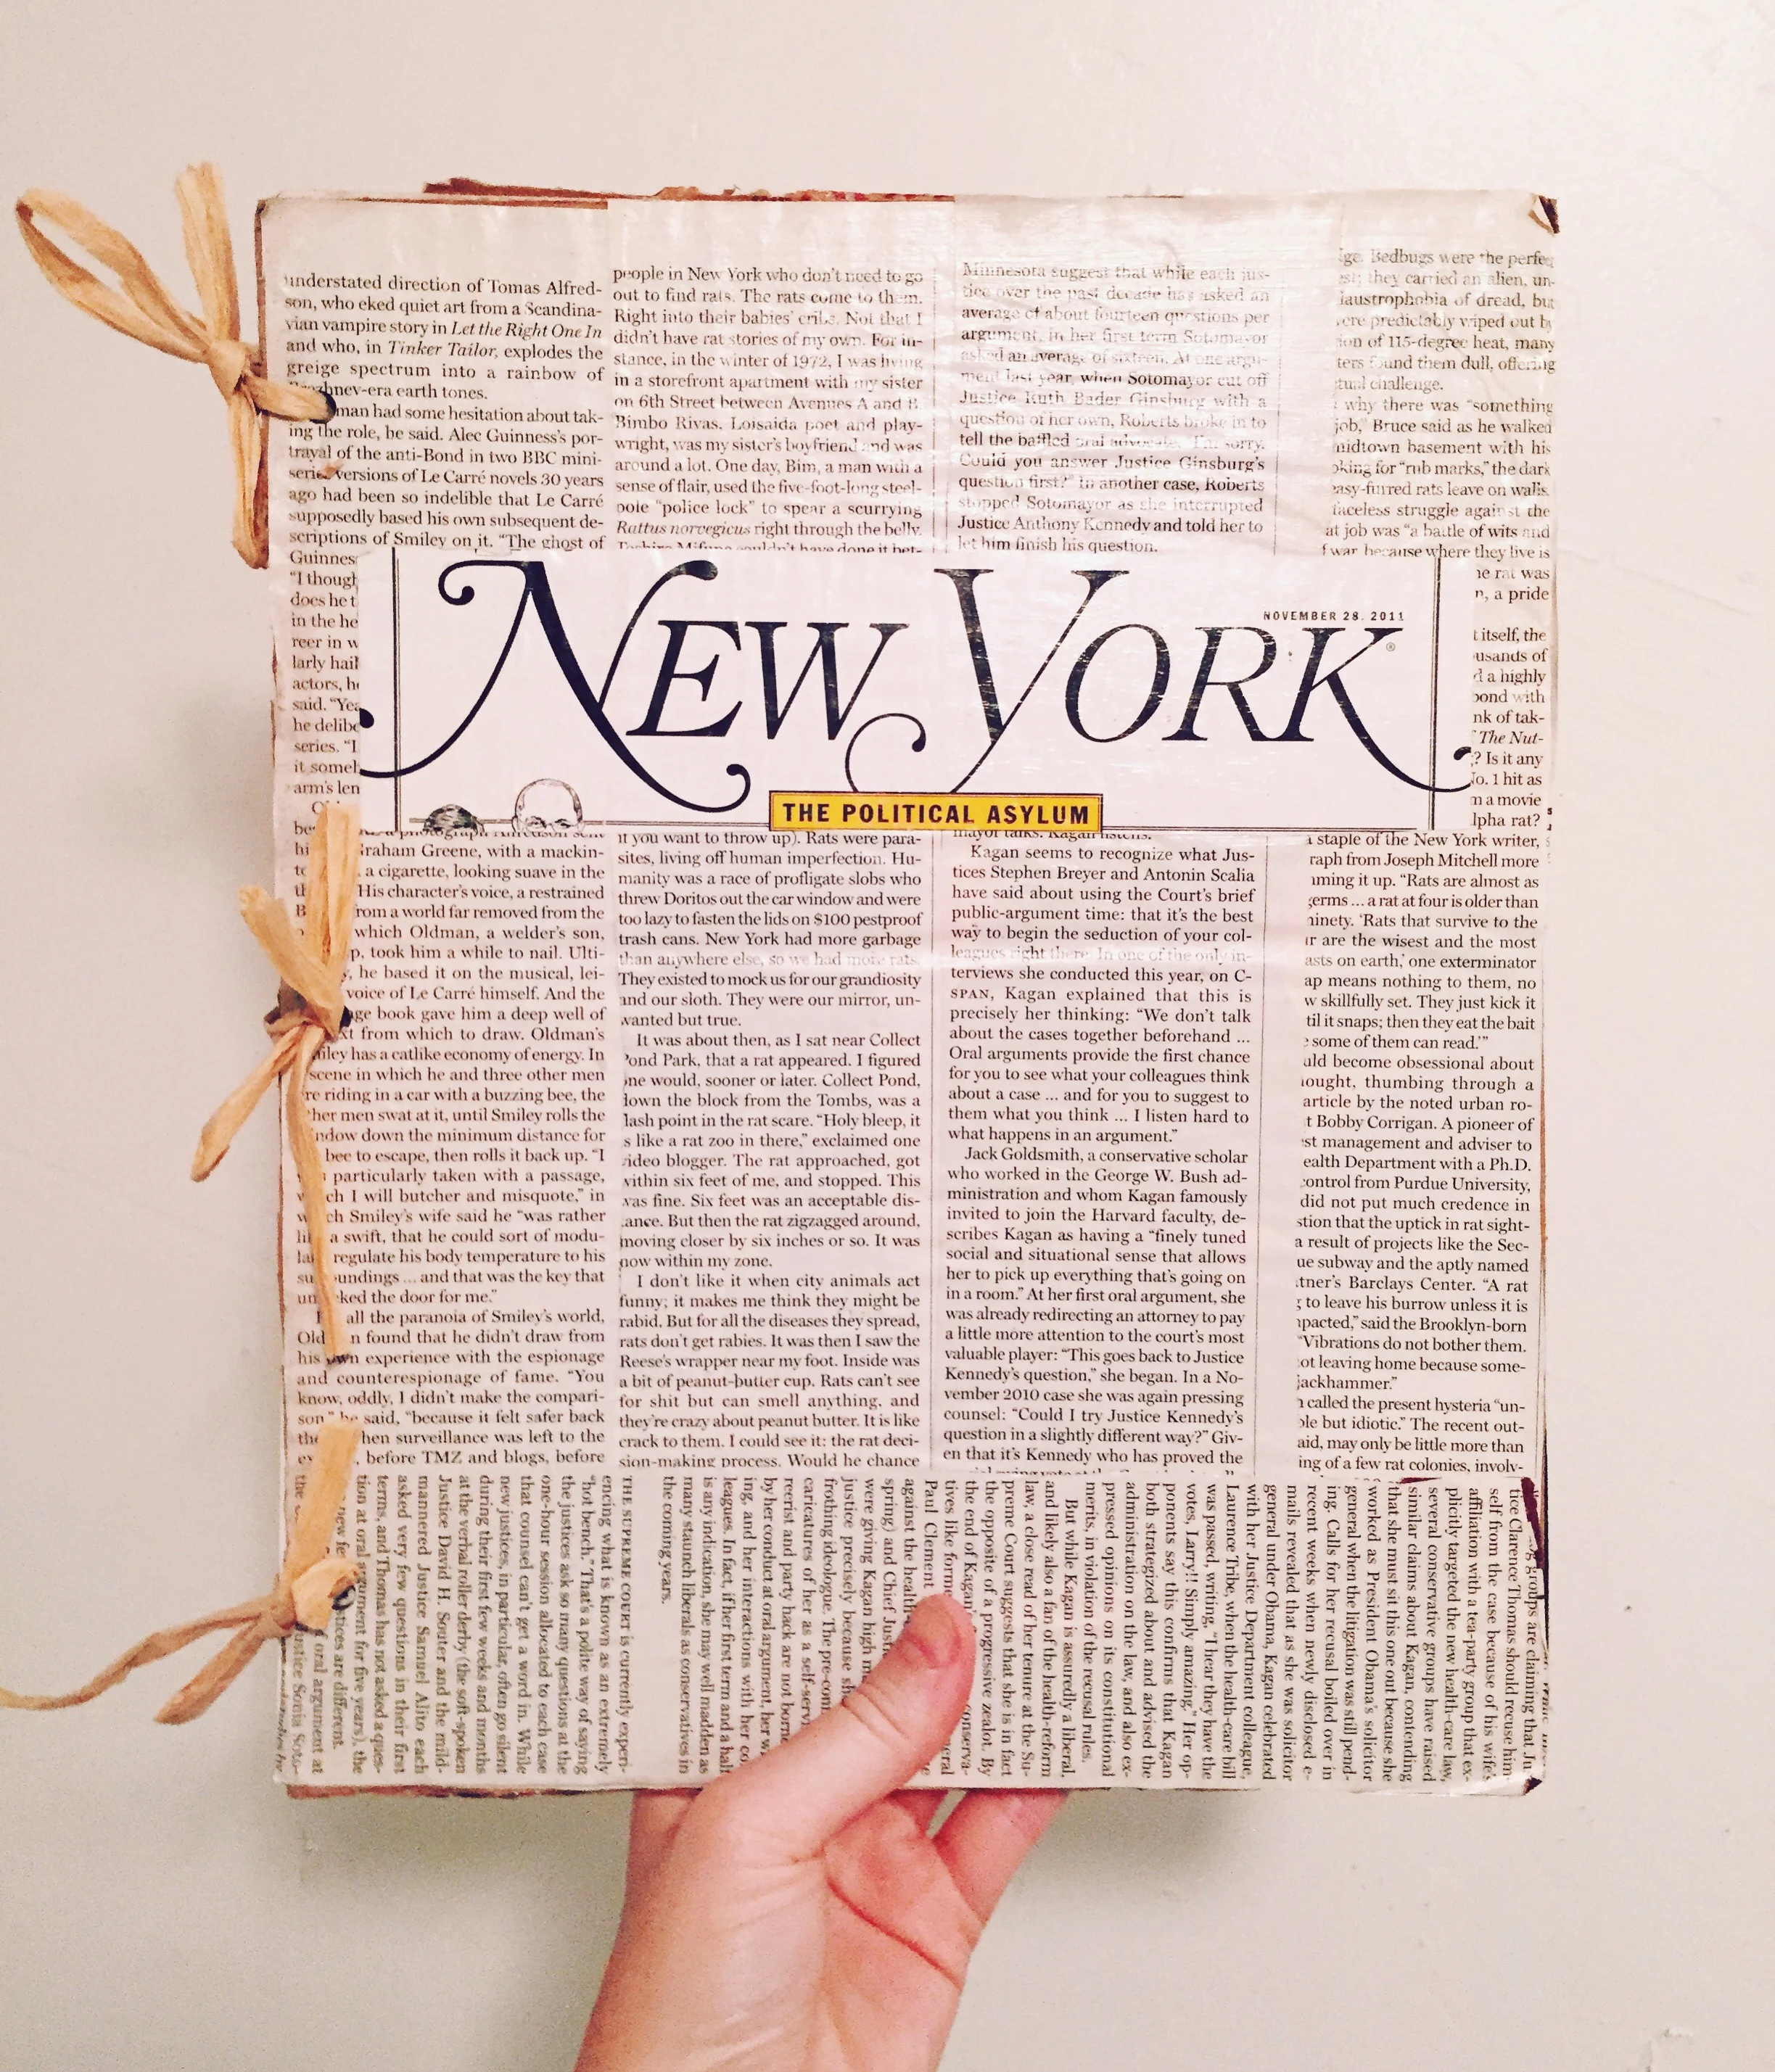 understated direction of Tomas Alfred-
son, who eked quiet art from a Scandina-
vian vampire story in Let the Right One In
and who, in Tinker Tailor, explodes the
greige spectrum into a rainbow of
earth tones.
man had some hesitation about tak-
ing the role, he said. Alec Guinness's por-
trayal of the anti-Bond in two BBC mini-
series versions of Le Carré novels 30 years
ago had been so indelible that Le Carré
supposedly based his own subsequent de-
scriptions of Smiley on it. "The ghost of
Guinnes
"I though
does he t
in the he
reer in w
larly hail
actors, he
said. "Yea
he delibe
series. "I
it somel
arm's len
people in New York who don't need to go
out to find rats. The rats come to them.
Right into their babies' cribs. Not that I
didn't have rat stories of my own. For in-
stance, in the winter of 1972, I was living
in a storefront apartment with my sister
on 6th Street between Avenues A and B.
Bimbo Rivas, Loisaida poet and play-
wright, was my sister's boyfriend and was
around a lot. One day, Bim, a man with a
sense of flair, used the five-foot-long steel-
pole "police lock" to spear a scurrying
Rattus norvegicus right through the belly.
Toshiro Mifune couldn't have done it bet-
Minnesota suggest that while each jus-
tice over the past decade has asked an
average of about fourteen questions per
argument, in her first term Sotomayor
asked an average of sixteen. At one argu-
ment last year, when Sotomayor cut off
Justice Ruth Bader Ginsburg with a
question of her own, Roberts broke in to
tell the baffled oral advocate, "I'm sorry.
Could you answer Justice Ginsburg's
question first?" In another case, Roberts
stopped Sotomayor as she interrupted
Justice Anthony Kennedy and told her to
let him finish his question.
ge. Bedbugs were the perfec
they carried an alien, un-
laustrophobia of dread, but
were predictably wiped out by
ion of 115-degree heat, many
ters found them dull, offering
tual challenge.
why there was "something
job," Bruce said as he walked
midtown basement with his
oking for "rub marks," the dark
easy-furred rats leave on walls.
faceless struggle against the
at job was "a battle of wits and
f war because where they live is
he rat was
n, a pride
t itself, the
usands of
d a highly
bond with
nk of tak-
The Nut-
? Is it any
No. 1 hit as
m a movie
lpha rat?
NEW YORK
NOVEMBER 28, 2011
®
THE POLITICAL ASYLUM
Graham Greene, with a mackin-
a cigarette, looking suave in the
His character's voice, a restrained
rom a world far removed from the
which Oldman, a welder's son,
p, took him a while to nail. Ulti-
y, he based it on the musical, lei-
voice of Le Carré himself. And the
ge book gave him a deep well of
xt from which to draw. Oldman's
iley has a catlike economy of energy. In
scene in which he and three other men
re riding in a car with a buzzing bee, the
her men swat at it, until Smiley rolls the
indow down the minimum distance for
bee to escape, then rolls it back up. "I
particularly taken with a passage,
ch I will butcher and misquote," in
ch Smiley's wife said he "was rather
li a swift, that he could sort of modu-
la regulate his body temperature to his
su oundings ... and that was the key that
un ked the door for me."
all the paranoia of Smiley's world,
Old n found that he didn't draw from
his own experience with the espionage
and counterespionage of fame. "You
know, oddly, I didn't make the compari-
son," he said, "because it felt safer back
the hen surveillance was left to the
, before TMZ and blogs, before
if you want to throw up). Rats were para-
sites, living off human imperfection. Hu-
manity was a race of profligate slobs who
threw Doritos out the car window and were
too lazy to fasten the lids on $100 pestproof
trash cans. New York had more garbage
than anywhere else, so we had more rats.
They existed to mock us for our grandiosity
and our sloth. They were our mirror, un-
wanted but true.
It was about then, as I sat near Collect
Pond Park, that a rat appeared. I figured
one would, sooner or later. Collect Pond,
down the block from the Tombs, was a
lash point in the rat scare. "Holy bleep, it
s like a rat zoo in there," exclaimed one
video blogger. The rat approached, got
within six feet of me, and stopped. This
was fine. Six feet was an acceptable dis-
tance. But then the rat zigzagged around,
moving closer by six inches or so. It was
now within my zone.
I don't like it when city animals act
funny; it makes me think they might be
rabid. But for all the diseases they spread,
rats don't get rabies. It was then I saw the
Reese's wrapper near my foot. Inside was
a bit of peanut-butter cup. Rats can't see
for shit but can smell anything, and
they're crazy about peanut butter. It is like
crack to them. I could see it: the rat deci-
sion-making process. Would he chance
mayor talks. Kagan listens.
Kagan seems to recognize what Jus-
tices Stephen Breyer and Antonin Scalia
have said about using the Court's brief
public-argument time: that it's the best
way to begin the seduction of your col-
leagues right there. In one of the only in-
terviews she conducted this year, on C-
SPAN, Kagan explained that this is
precisely her thinking: "We don't talk
about the cases together beforehand ...
Oral arguments provide the first chance
for you to see what your colleagues think
about a case ... and for you to suggest to
them what you think ... I listen hard to
what happens in an argument."
Jack Goldsmith, a conservative scholar
who worked in the George W. Bush ad-
ministration and whom Kagan famously
invited to join the Harvard faculty, de-
scribes Kagan as having a "finely tuned
social and situational sense that allows
her to pick up everything that's going on
in a room." At her first oral argument, she
was already redirecting an attorney to pay
a little more attention to the court's most
valuable player: "This goes back to Justice
Kennedy's question," she began. In a No-
vember 2010 case she was again pressing
counsel: "Could I try Justice Kennedy's
question in a slightly different way?" Giv-
en that it's Kennedy who has proved the
a staple of the New York writer,
raph from Joseph Mitchell more
ming it up. "Rats are almost as
germs ... a rat at four is older than
ninety. 'Rats that survive to the
ur are the wisest and the most
asts on earth,' one exterminator
ap means nothing to them, no
w skillfully set. They just kick it
til it snaps; then they eat the bait
e some of them can read.'"
uld become obsessional about
ought, thumbing through a
article by the noted urban ro-
t Bobby Corrigan. A pioneer of
st management and adviser to
ealth Department with a Ph.D.
control from Purdue University,
did not put much credence in
stion that the uptick in rat sight-
a result of projects like the Sec-
ue subway and the aptly named
tner's Barclays Center. "A rat
g to leave his burrow unless it is
pacted," said the Brooklyn-born
"Vibrations do not bother them.
ot leaving home because some-
jackhammer."
n called the present hysteria "un-
ble but idiotic." The recent out-
aid, may only be little more than
ing of a few rat colonies, involv-
groups are claiming that Jus-
tice Clarence Thomas should recuse him-
self from the case because of his wife's
affiliation with a tea-party group that ex-
plicitly targeted the new health-care law,
several conservative groups have raised
similar claims about Kagan, contending
that she must sit this one out because she
worked as President Obama's solicitor
general when the litigation was still pend-
ing. Calls for her recusal boiled over in
recent weeks when newly disclosed e-
mails revealed that as she was solicitor
general under Obama, Kagan celebrated
with her Justice Department colleague,
Laurence Tribe, when the health-care bill
was passed, writing, "I hear they have the
votes, Larry!! Simply amazing." Her op-
ponents say this confirms that Kagan
both strategized about and advised the
administration on the law, and also ex-
pressed opinions on its constitutional
merits, in violation of the recusal rules.
But while Kagan is assuredly a liberal,
and likely also a fan of the health-reform
law, a close read of her tenure at the Su-
preme Court suggests that she is in fact
the opposite of a progressive zealot. By
the end of Kagan's conserva-
tives like forme eneral
Paul Clement
against the health
spring) and Chief Just
were giving Kagan high m
justice precisely because sh
frothing ideologue. The pre-con
caricatures of her as a self-servi
recrist and party hack are not borne
by her conduct at oral argument, her w
ing, and her interactions with her co
leagues. In fact, if her first term and a half
is any indication, she may well madden as
many staunch liberals as conservatives in
the coming years.
THE SUPREME COURT is currently experi-
encing what is known as an extremely
"hot bench." That's a polite way of saying
the justices ask so many questions at the
one-hour session allocated to each case
that counsel can't get a word in. While
new justices, in particular, often go silent
during their first few weeks and months
at the verbal roller derby (the soft-spoken
Justice David H. Souter and the mild-
mannered Justice Samuel Alito each
asked very few questions in their first
terms, and Thomas has not asked a ques-
tion at oral argument for five years), the
new justices are different.
oral argument at
Justice Sonia Soto-